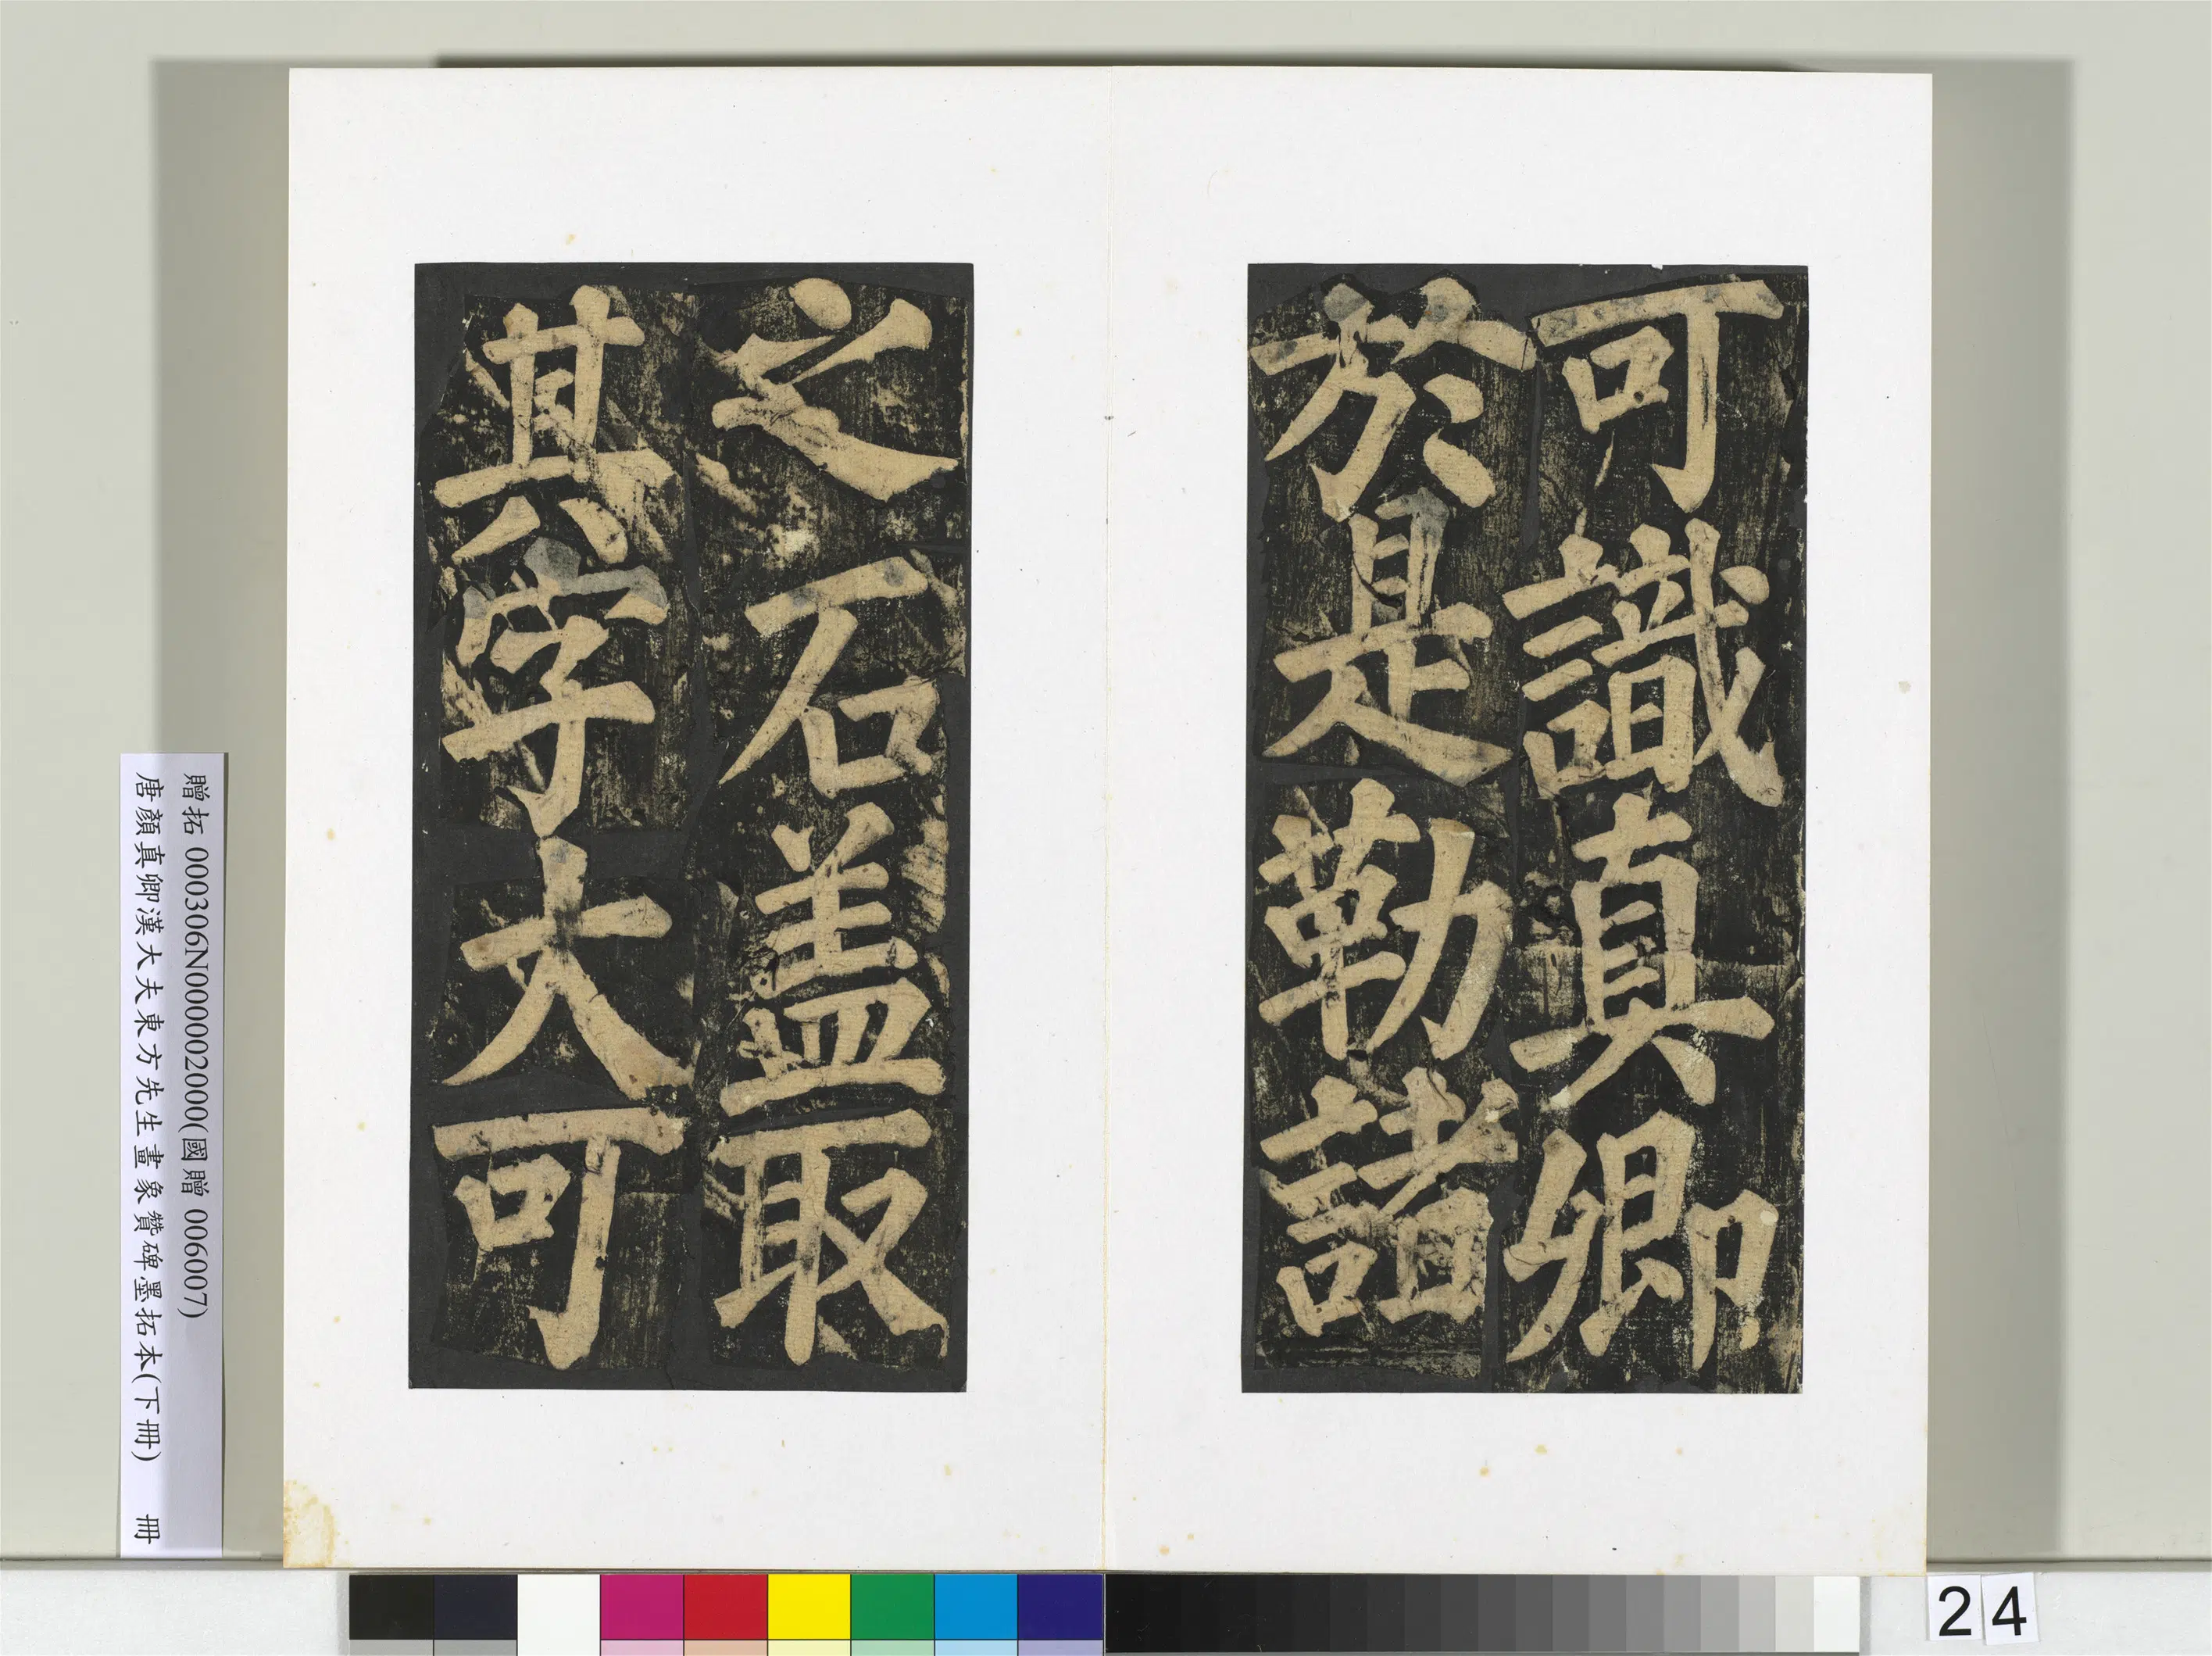 可識真卿
於是勒諸
之石盖取
其字大可
贈拓 000306N000002000(國贈 006007)
唐顏真卿漢大夫東方先生畫象贊碑墨拓本(下冊) 冊
24